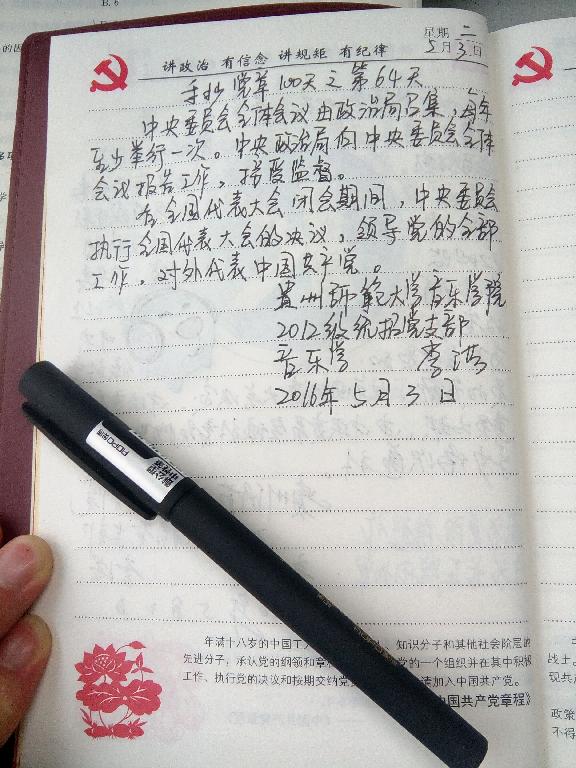 B. 6
星期 二
5月3日
讲政治 有信念 讲规矩 有纪律
手抄党章100天之第64天
中央委员会全体会议由政治局召集，每年
至少举行一次。中央政治局向中央委员会全体
会议报告工作，接受监督。
在全国代表大会闭会期间，中央委员会
执行全国代表大会的决议，领导党的全部
工作，对外代表中国共产党。
贵州师范大学音乐学院
2012级统招党支部
音乐学 李洪
2016年5月3日
年满十八岁的中国工 知识分子和其他社会阶层的
先进分子，承认党的纲领和章 党的一个组织并在其中积极
工作、执行党的决议和按期交纳党 请加入中国共产党。
中国共产党章程》
战士。
现共
政策
不得